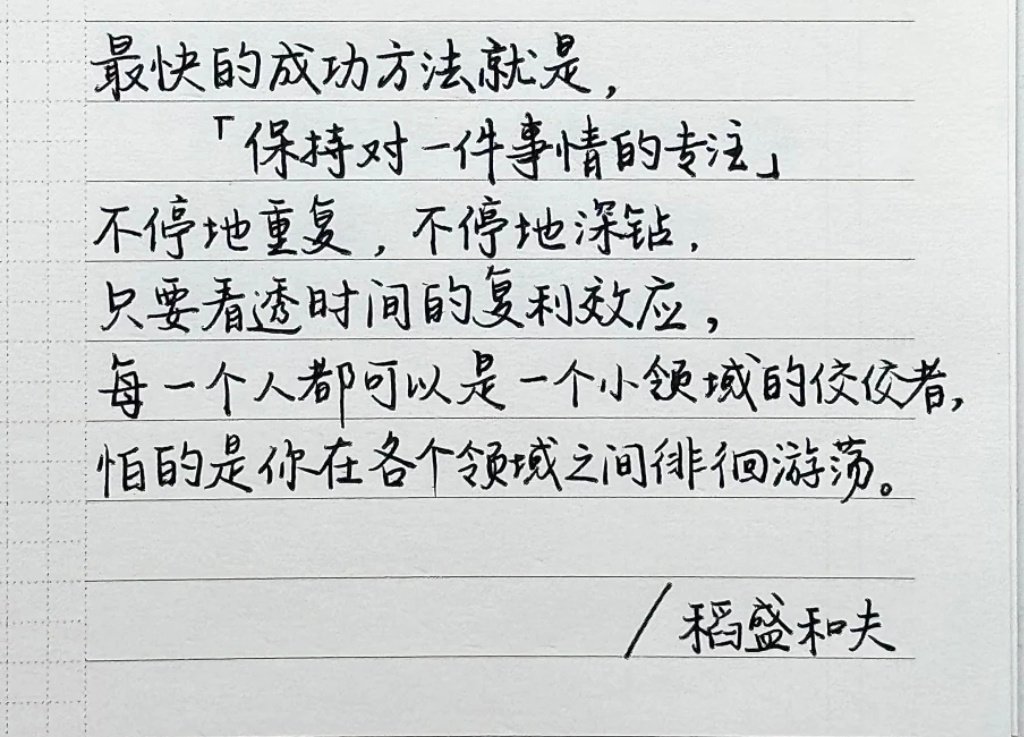 最快的成功方法就是，
「保持对一件事情的专注」
不停地重复，不停地深钻．
只要看透时间的复利效应，
每一个人都可以是一个小领域的佼佼者，
怕的是你在各个领域之间徘徊游荡。
/稻盛和夫